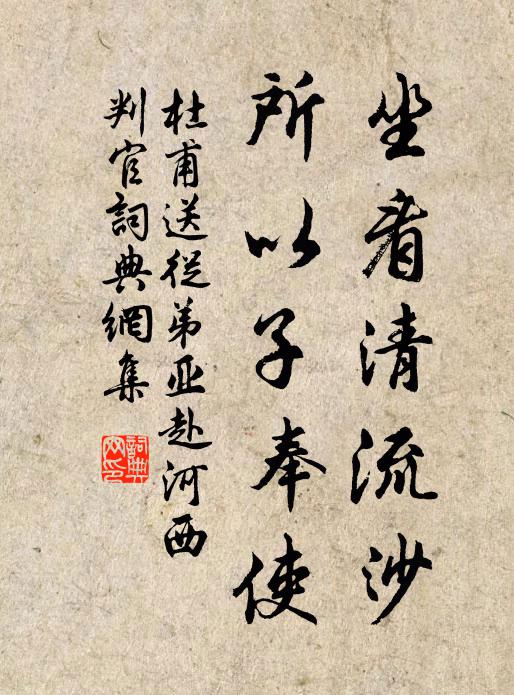 坐看清流沙
所以子奉使
杜甫送從弟亚赴河西
判官詞典網集
詞典网印